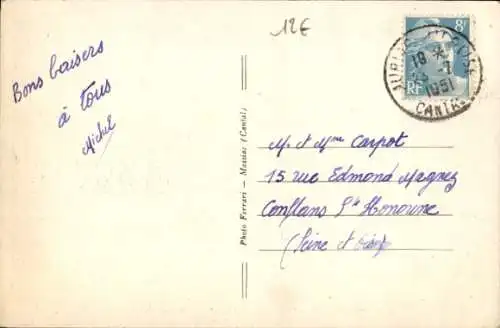 12€
Bons baisers
à Tous
Michel
8F
18 *
1951
CANTAL
RF
Photo Ferrari — Massiac (Cantal)
M. et Mme Carpot
15 rue Edmond Magnez
Conflans Ste Honorine
(Seine et Oise)